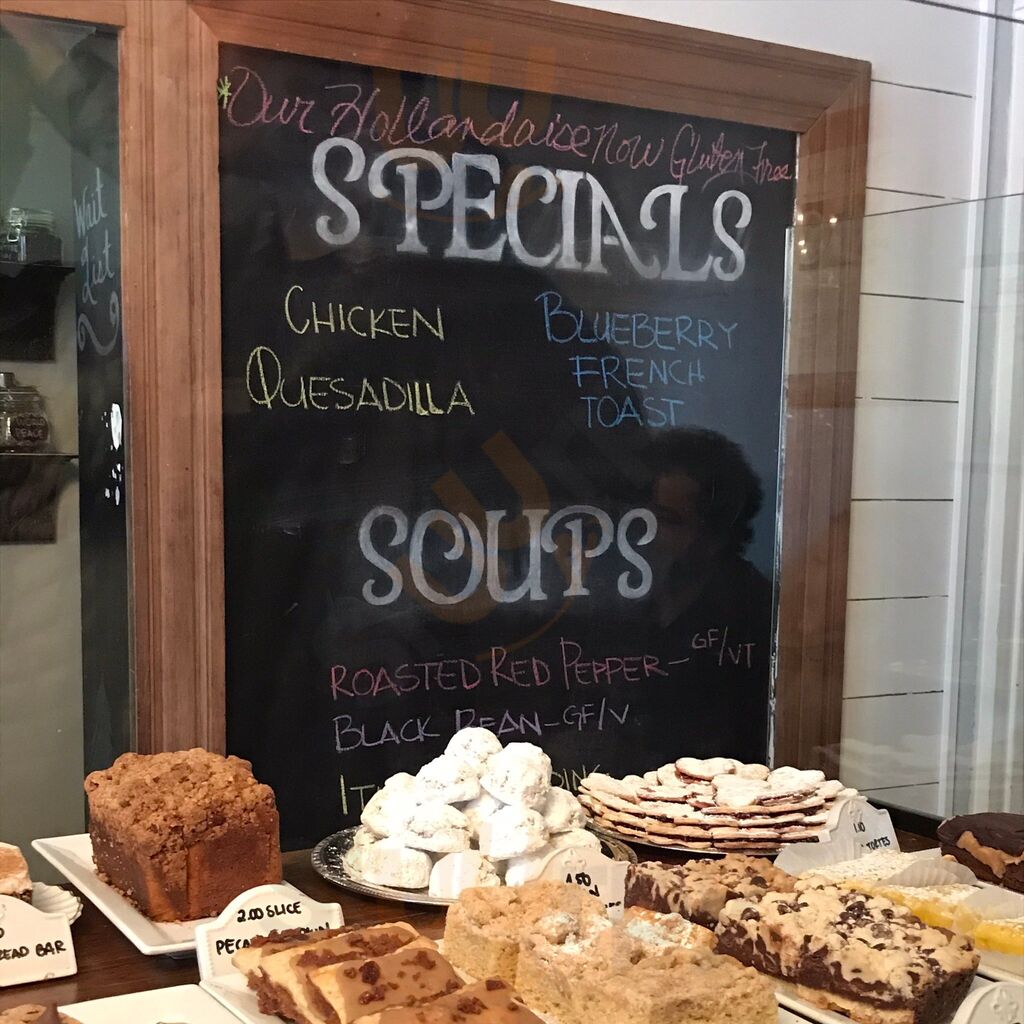 *Our Hollandaise Now Gluten Free
SPECIALS
CHICKEN
QUESADILLA
BLUEBERRY
FRENCH
TOAST
SOUPS
ROASTED RED PEPPER - GF/VT
BLACK BEAN - GF/V
Wait
List
PEACE
2.00 SLICE
READ BAR
1.50
TORTES